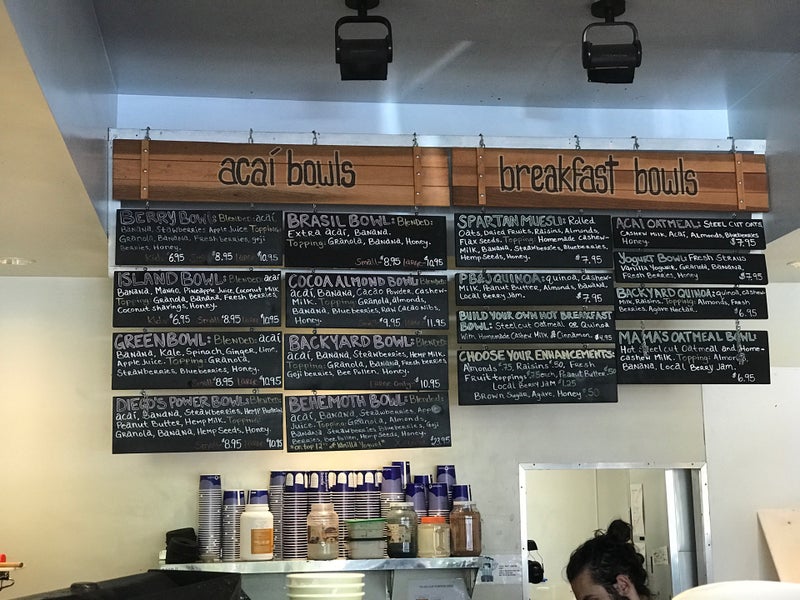 acaí bowls
BERRY BOWL: Blended: acaí
Banana, Strawberries, Apple Juice Topping:
Granola, Banana, Fresh berries, Goji
Berries, Honey.
Kids 6.95 Small $8.95 Large $10.95
ISLAND BOWL: Blended: acaí
Banana, Mango, Pineapple Juice, Coconut Milk
Topping: Granola, Banana, Fresh Berries,
Coconut shavings, Honey.
Kids $6.95 Small $8.95 Large $10.95
GREEN BOWL: Blended: acaí
Banana, Kale, Spinach, Ginger, Lime,
Apple Juice. Topping: Granola,
Strawberries, Blueberries, Honey.
Small $8.95 Large $10.95
DIEGO'S POWER BOWL: Blended:
acaí, Banana, Strawberries, Hemp Protein,
Peanut Butter, Hemp Milk. Topping:
Granola, Banana, Hemp Seeds, Honey.
Small $8.95 Large $10.95
BRASIL BOWL: Blended:
Extra acaí, Banana,
Topping: Granola, Banana, Honey.
Small $8.95 Large $10.95
COCOA ALMOND BOWL: Blended:
acaí, Banana, Cacao Powder, Cashew-
Milk. Topping: Granola, Almonds,
Banana, Blueberries, Raw Cacao Nibs,
Honey.
Small $9.95 Large $11.95
BACKYARD BOWL: Blended:
acaí, Banana, Strawberries, Hemp Milk.
Topping: Granola, Banana, Fresh berries
Goji berries, Bee Pollen, Honey.
Large Only $10.95
BEHEMOTH BOWL: Blended:
acaí, Banana, Strawberries, Apple
Juice. Topping: Granola, Almonds,
Banana, Strawberries, Blueberries, Goji
Berries, Bee Pollen, Hemp Seeds, Honey.
$22.95
breakfast bowls
SPARTAN MUESLI: Rolled
Oats, Dried Fruits, Raisins, Almonds,
Flax Seeds. Topping: Homemade Cashew
Milk, Banana, Strawberries, Blueberries,
Hemp Seeds, Honey.
$7.95
PB&J QUINOA: Quinoa, Cashew-
Milk, Peanut Butter, Almonds, Banana,
Local Berry Jam.
$7.95
BUILD YOUR OWN HOT BREAKFAST
BOWL: Steel cut Oatmeal OR Quinoa
With Homemade Cashew Milk & Cinnamon.
CHOOSE YOUR ENHANCEMENTS:
Almonds $.75, Raisins $.50, Fresh
Fruit toppings $.75 each, Peanut Butter $.50
Local Berry Jam $1.25
Brown Sugar, Agave, Honey $.50
ACAI OATMEAL: Steel cut Oats
Cashew Milk, Acaí, Almonds, Blueberries
Honey.
$7.95
YOGURT BOWL: Fresh Straus
Vanilla Yogurt, Granola, Banana,
Fresh Berries, Honey
$7.95
BACKYARD QUINOA: quinoa, Cashew
Milk, Raisins. Topping: Almonds, Fresh
Berries, Agave Nectar.
$6.95
MAMA'S OATMEAL BOWL:
Hot Steel cut Oatmeal and Home-
made Cashew Milk. Topping: Almonds,
Banana, Local Berry Jam.
$6.95